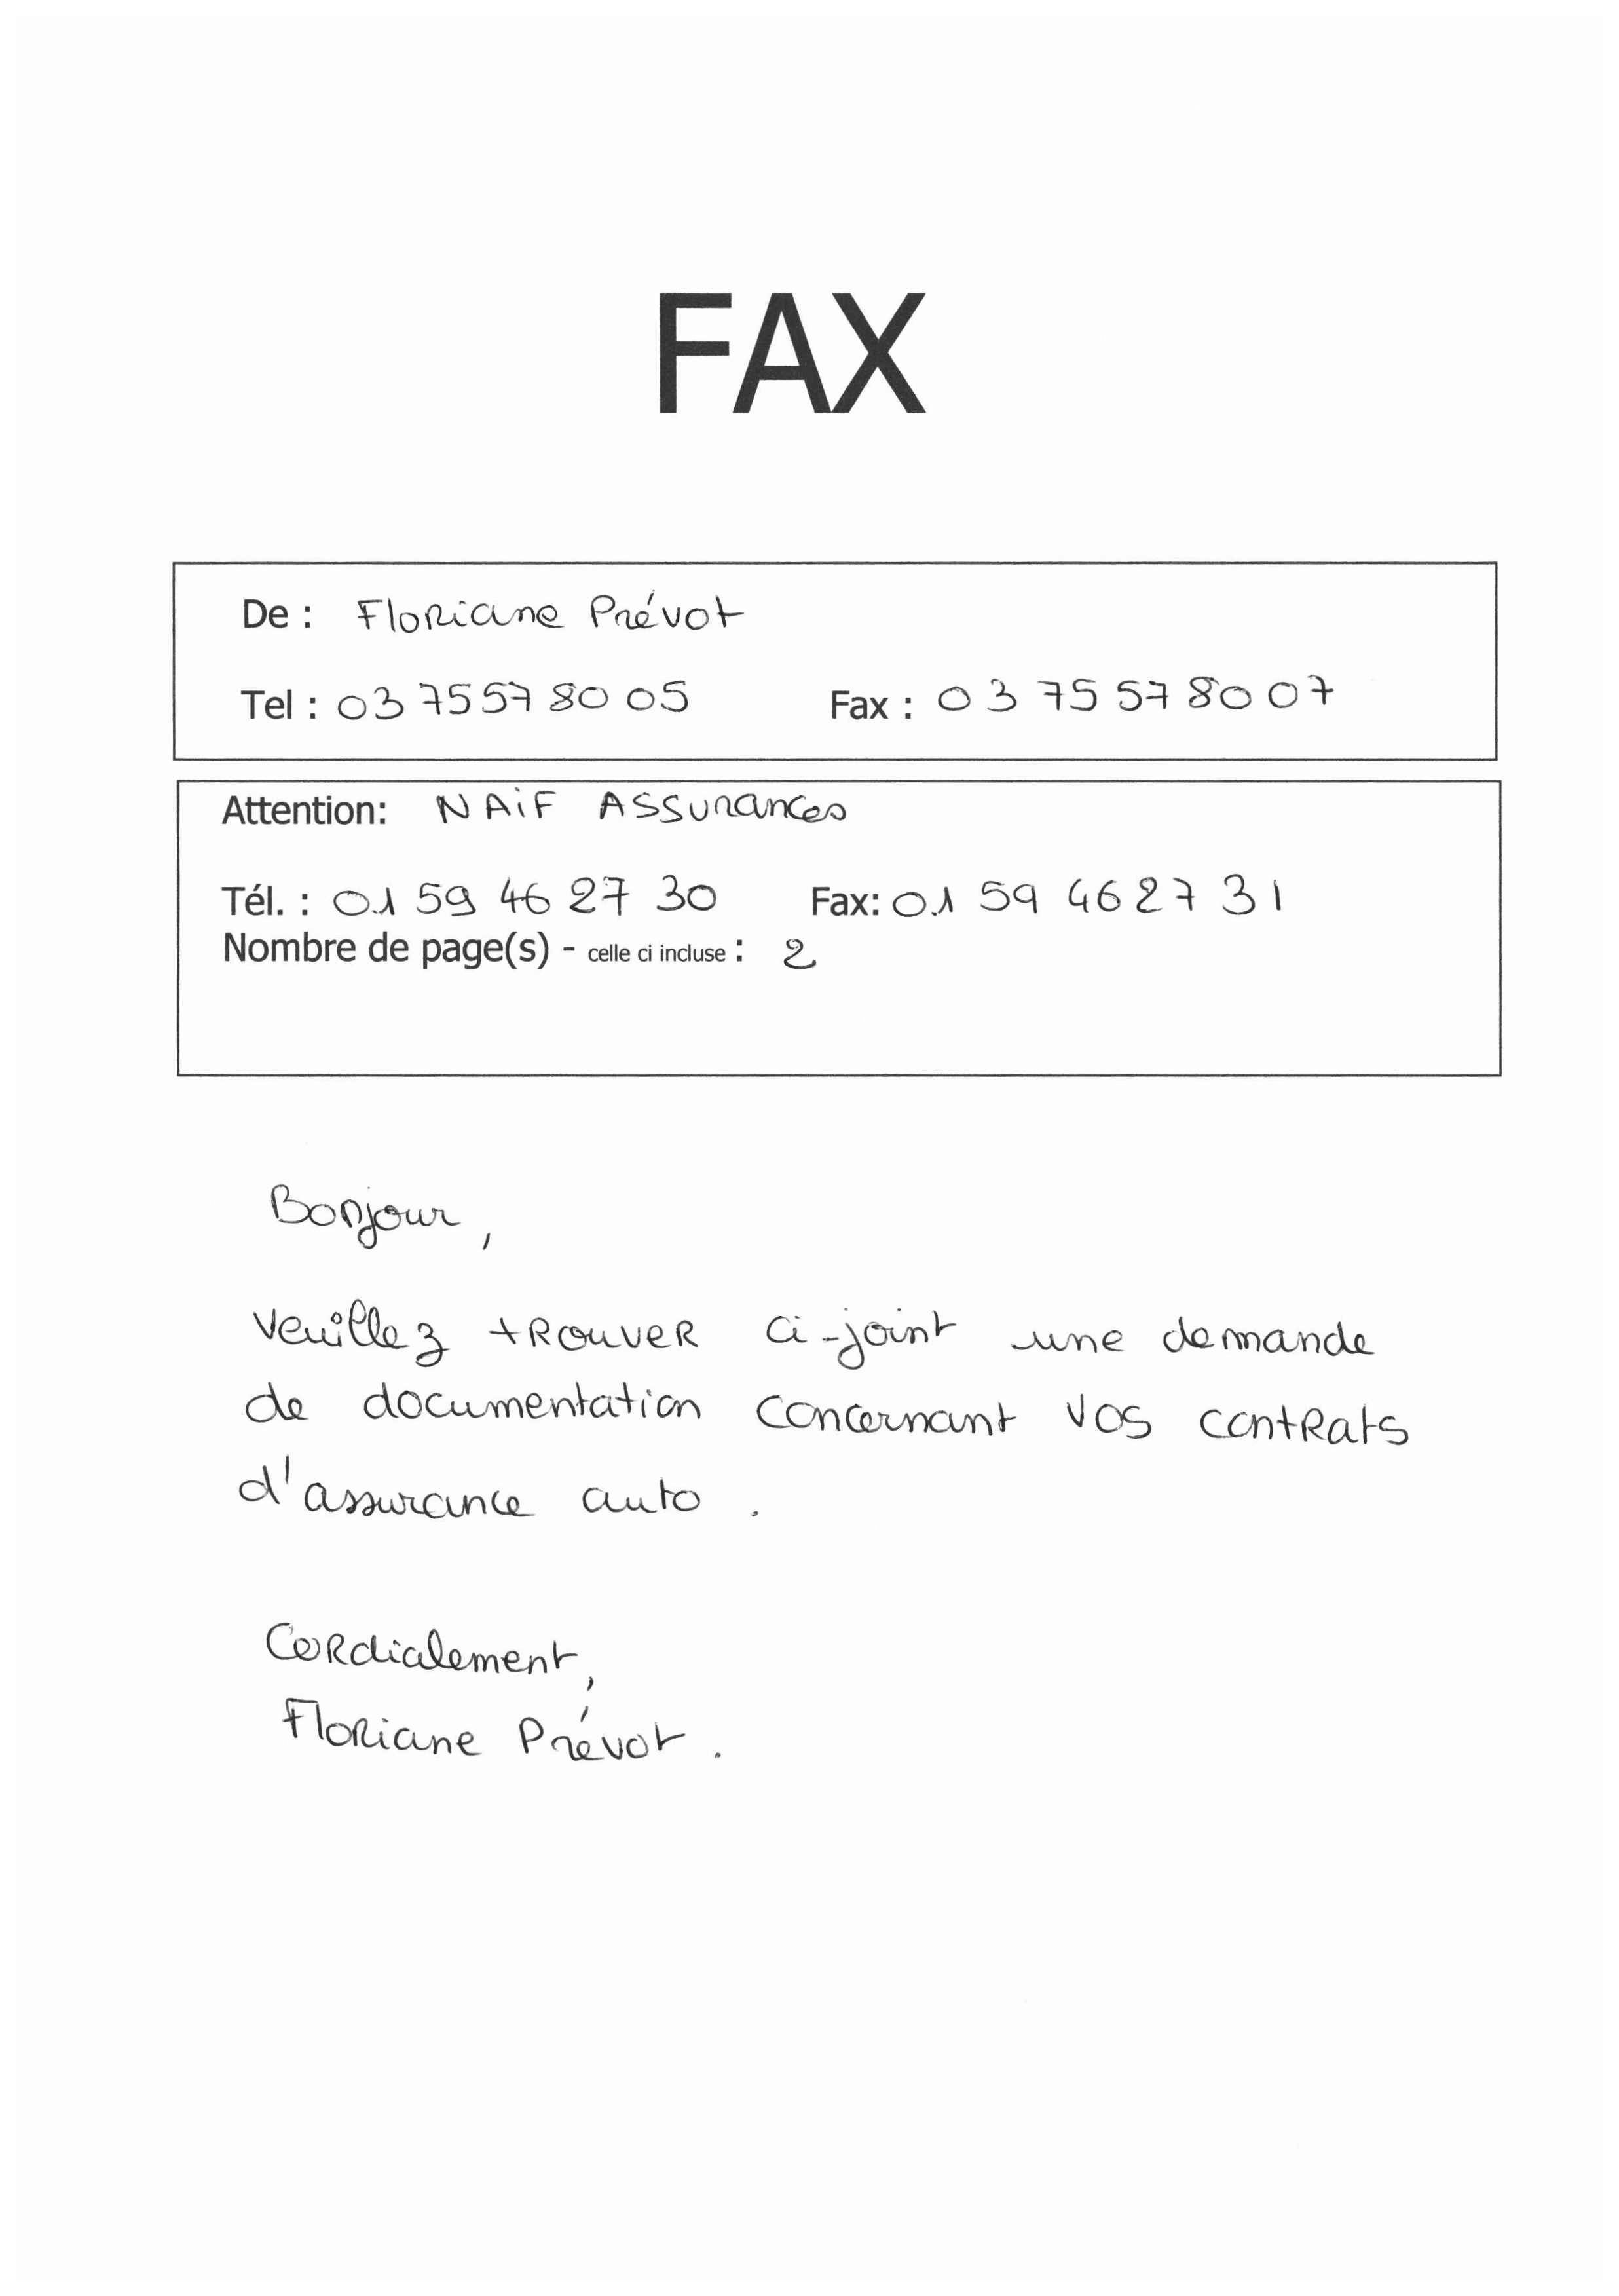 FAX
De : Floriane Prévot
Tel : 03 75 57 80 05 Fax : 03 75 57 80 07
Attention: NAiF Assurances
Tél. : 01 59 46 27 30 Fax: 01 59 46 27 31
Nombre de page(s) - celle ci incluse : 2
Bonjour,
Veuillez trouver ci-joint une demande
de documentation concernant vos contrats
d'assurance auto.
Cordialement,
Floriane Prévot.